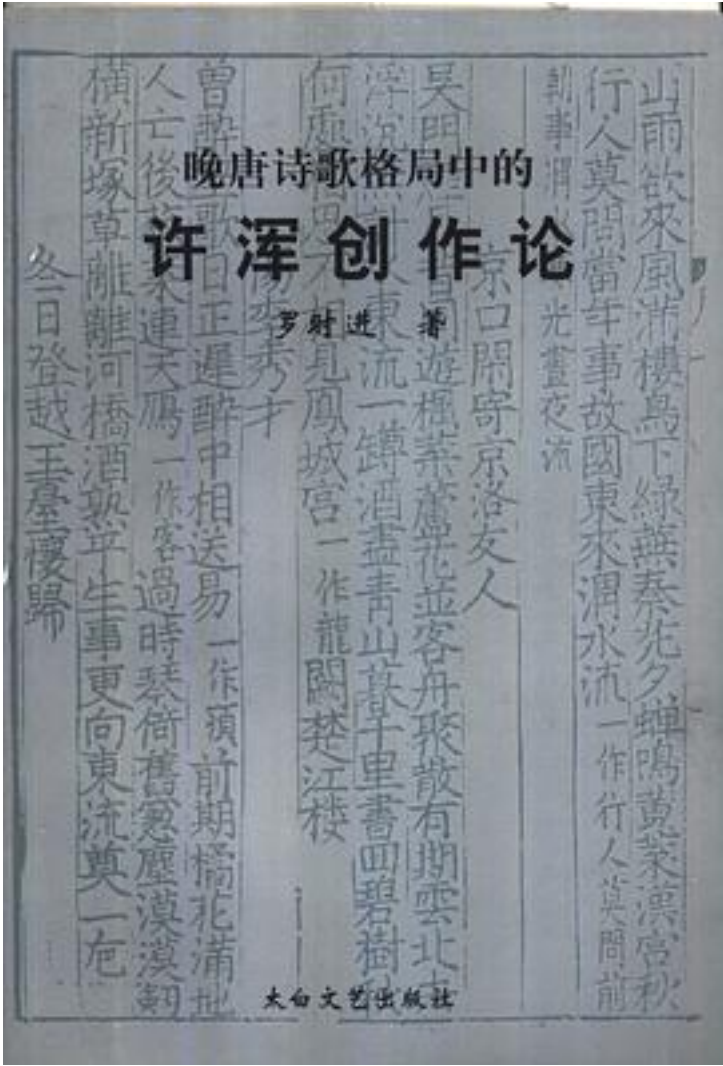 晚唐诗歌格局中的
许浑创作论
罗时进 著
山雨欲來風滿樓鳥下綠蕪秦苑夕蟬鳴黄葉漢宮秋
行人莫問當年事故國東來渭水流一作行人莫問前
朝事渭 光晝夜流
京口閑寄京洛友人
吳門 同遊楓葉蘆花並客舟聚散有期雲北
浮沉 計 東流一罇酒盡青山暮千里書回碧樹
何處 思不相見鳳城宮一作龍闕楚江樓
李秀才
曾醉 歌日正遲醉中相送易一作須前期橘花滿地
人亡後 葉連天鴈一作客過時琴倚舊窻塵漠漠劒
橫新塚草離離河橋酒熟平生事更向東流奠一巵
冬日登越王臺懷歸
太白文艺出版社